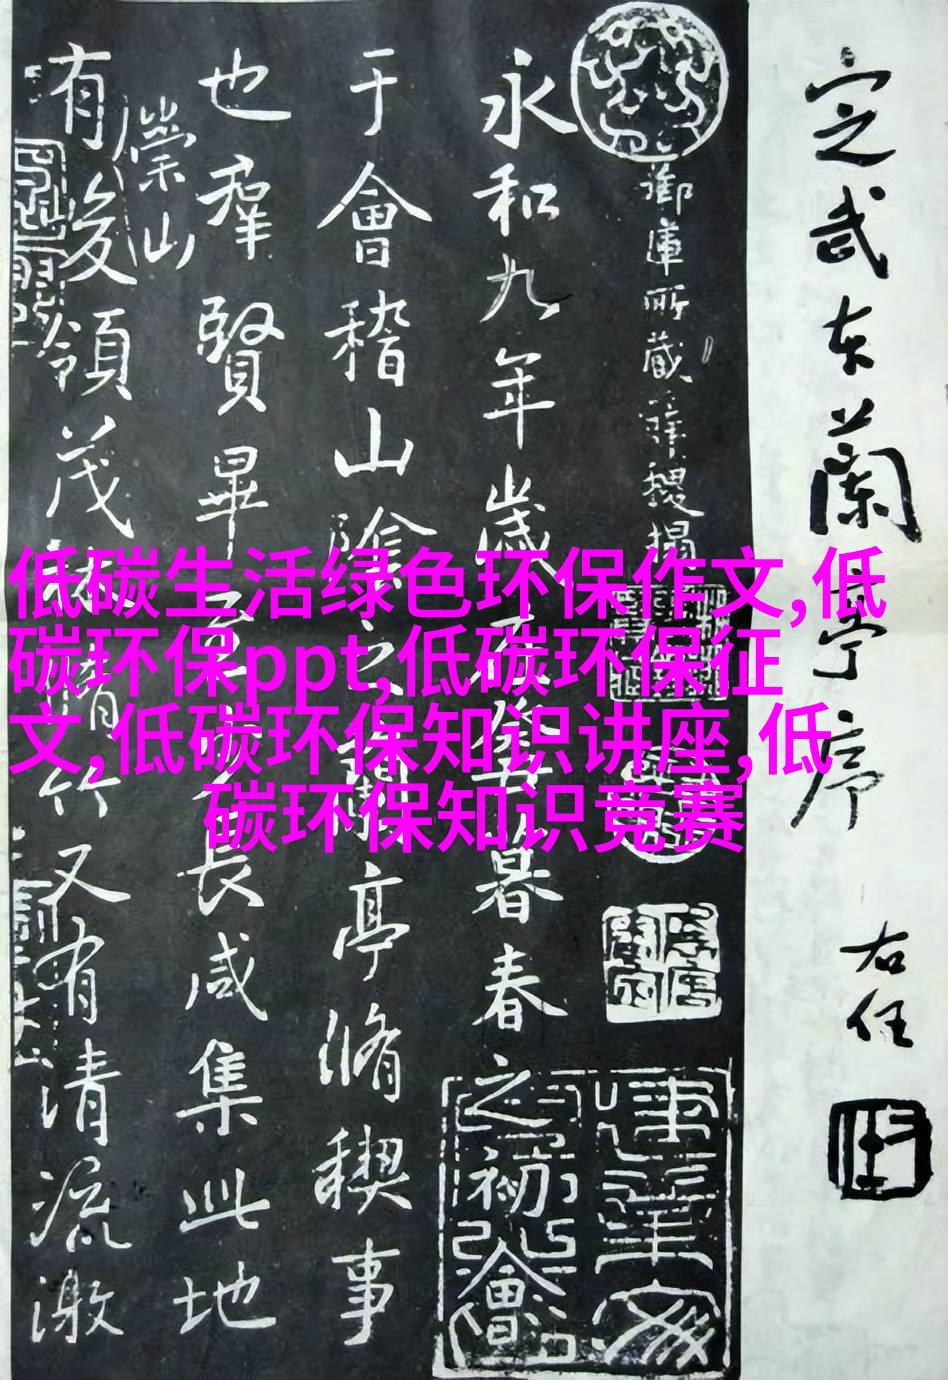 定武本蘭亭序
右任
御庫所藏
永和九年歲在癸丑暮春之初會
于會稽山陰之蘭亭脩稧事
也羣賢畢至少長咸集此地
有崇山峻領茂林脩竹又有清流激
低碳生活绿色环保作文,低
碳环保ppt,低碳环保征
文,低碳环保知识讲座,低
碳环保知识竞赛